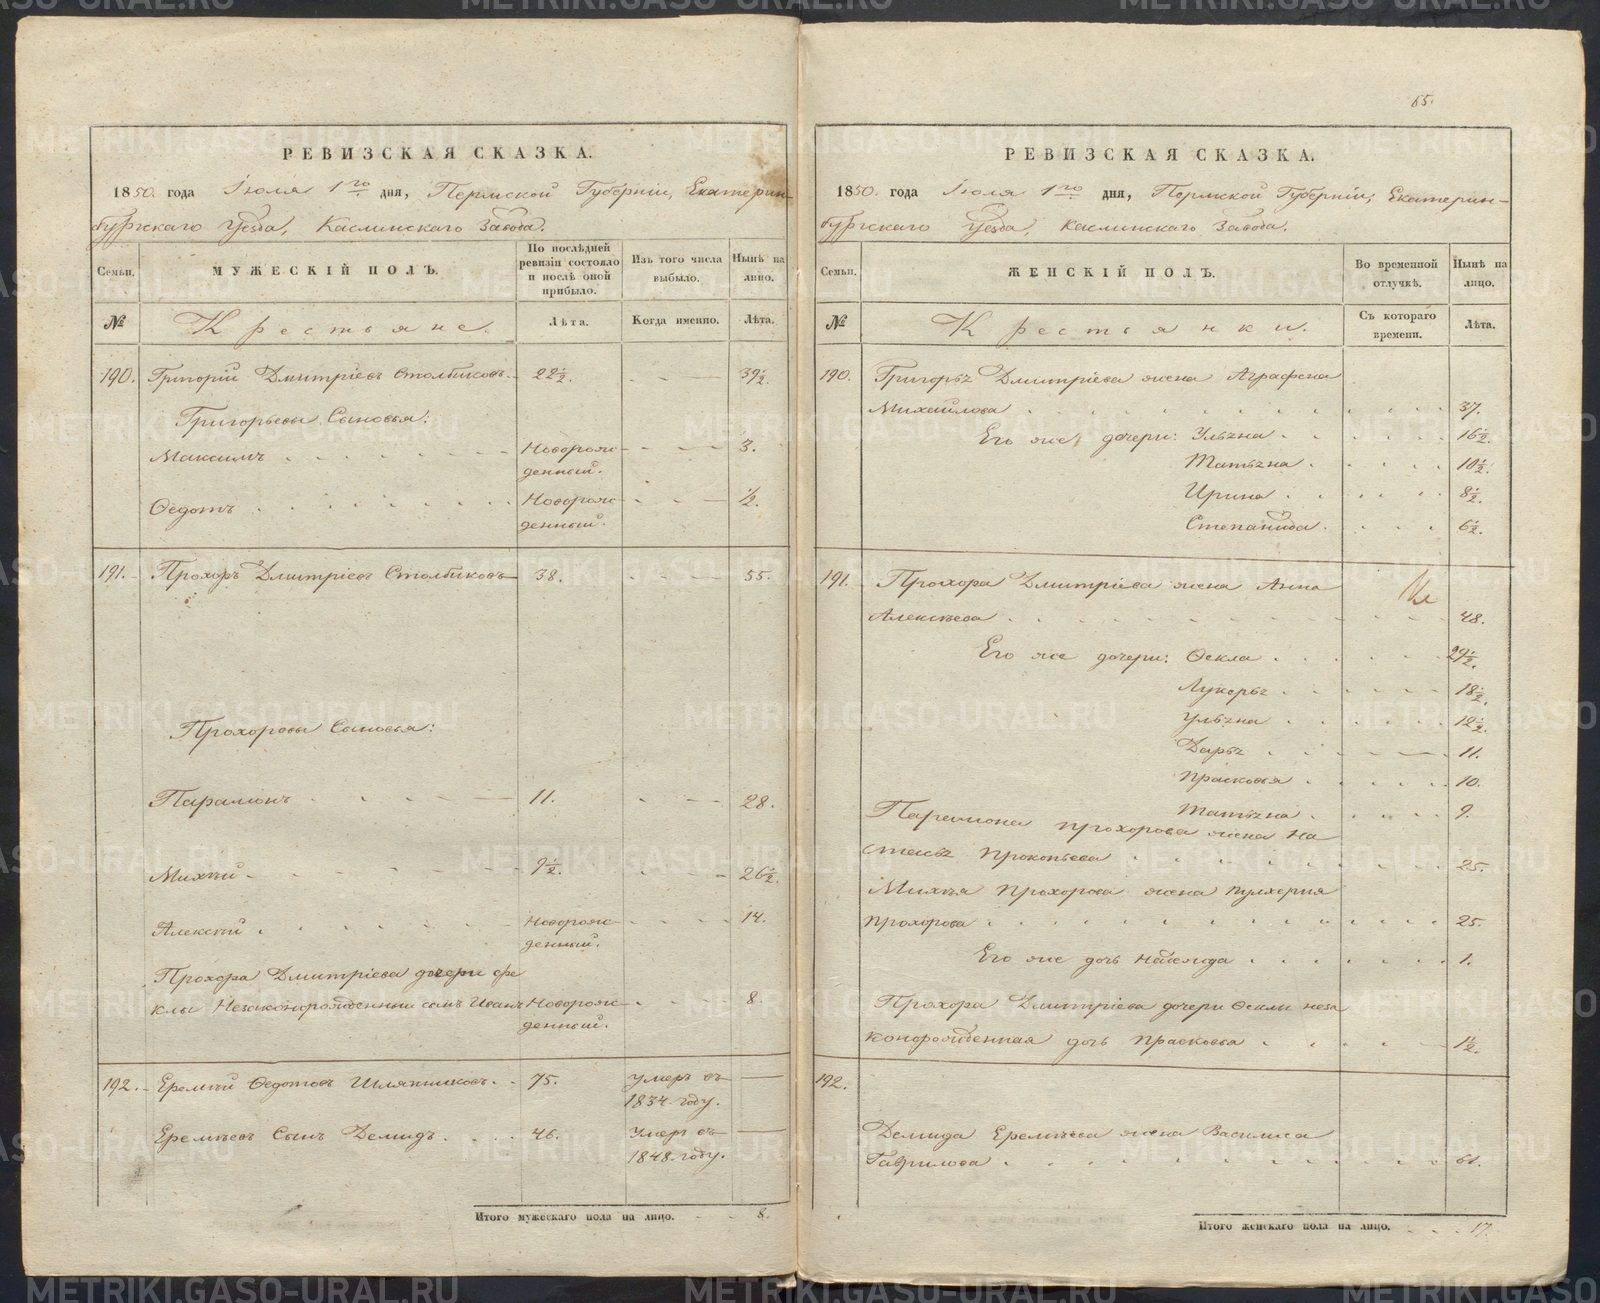 РЕВИЗСКАЯ СКАЗКА.
1850. года Іюля 1го дня, Пермской Губерніи, Екатерин-
бургскаго Уезда, Каслинскаго Завода.
Семьи.
МУЖЕСКІЙ ПОЛЪ.
По послѣдней ревизіи состояло и послѣ оной прибыло.
Изъ того числа выбыло.
Нынѣ на лицо.
№
Крестьяне.
Лѣта.
Когда именно.
Лѣта.
190. Григорій Дмитріевъ Столбиковъ. 22½. 39½.
Григорьевы Сыновья:
Максимъ Новорож- 3.
денный.
Ѳедотъ Новорож- ½.
денный.
191. Прохоръ Дмитріевъ Столбиковъ 38. 55.
Прохоровы Сыновья:
Парамонъ 11. 28.
Михѣй 9½. 26½.
Алексѣй Новорож- 14.
денный.
Прохора Дмитріева дочери фе
клы Незаконорожденный сынъ Иванъ Новорож- 8.
денный.
192. Еремѣй Ѳедотовъ Шляпниковъ. 75. умеръ въ
1834. году.
Еремѣевъ Сынъ Демидъ. 46. Умеръ въ
1848. году.
Итого мужескаго пола на лицо. 8.
65.
РЕВИЗСКАЯ СКАЗКА.
1850. года Іюля 1го дня, Пермской Губерніи, Екатерин-
бургскаго Уезда, Каслинскаго Завода.
Семьи.
ЖЕНСКІЙ ПОЛЪ.
Во временной отлучкѣ.
Нынѣ на лицо.
№
Крестьянки.
Съ котораго времени.
Лѣта.
190. Григорья Дмитріева жена Аграфена
Михайлова 37.
Его же, дочери: Ульяна 16½.
Татьяна 10½.
Ирина 8½.
Степанида. 6½.
191. Прохора Дмитріева жена Анна
Алексѣева 48.
Его же дочери: Ѳекла 29½.
Лукерья 18½.
Ульяна 12½.
Дарья 11.
Прасковья 10.
Татьяна 9.
Парамона Прохорова жена На
стасья Прокопьева 25.
Михѣя Прохорова жена Пулхерия
Прохорова 25.
Его же дочь 1.
Прохора Дмитріева дочери Ѳеклы неза
конорожденная дочь Прасковья 1½.
192.
Демида Еремѣева жена Василиса
Гаврилова 61.
Итого женскаго пола на лицо. 17.
METRIKI.GASO-URAL.RU